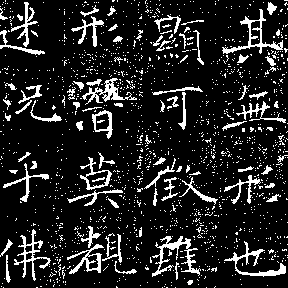 其無形也
顯可徵雖
形潛莫覩
迷況乎佛